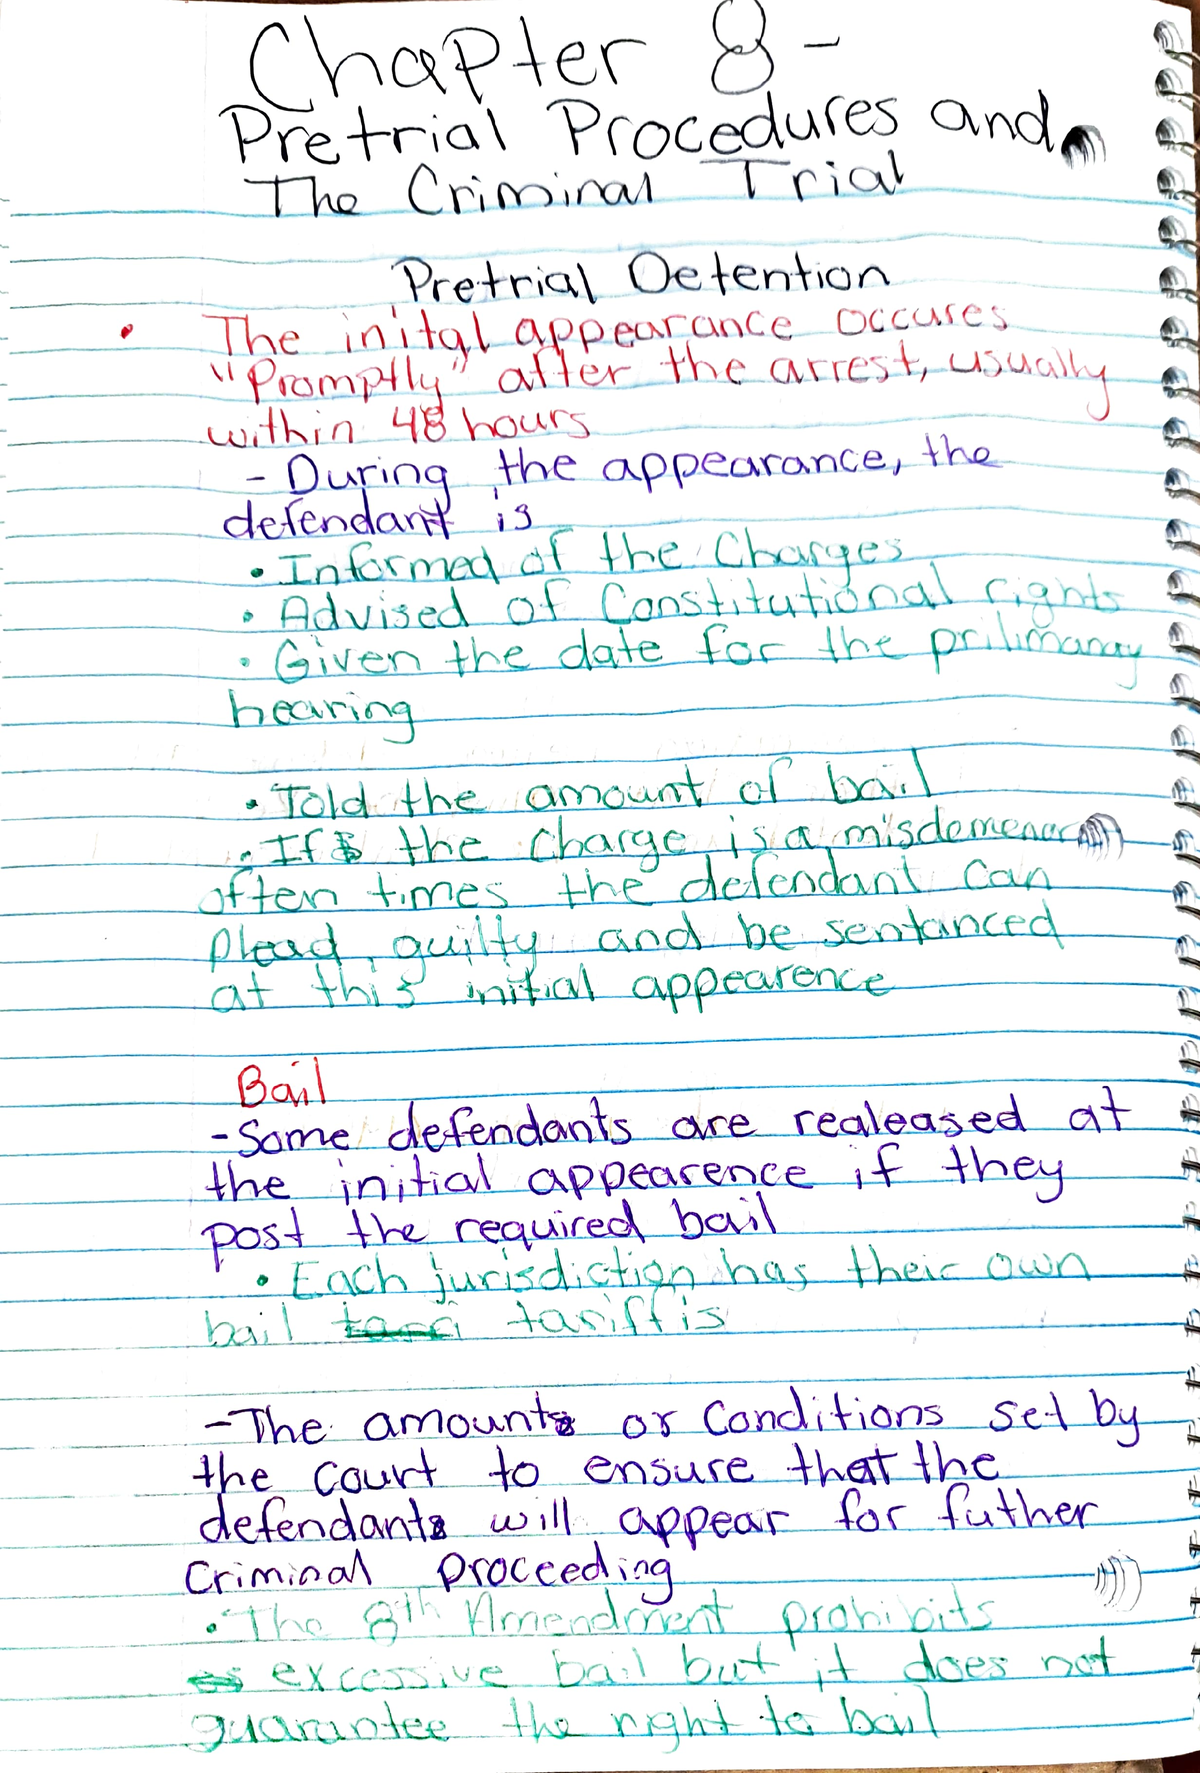 Chapter 8 -
Pretrial Procedures and
The Criminal Trial
Pretrial Detention
• The inital appearance occures
"Promptly" after the arrest, usually
within 48 hours
- During the appearance, the
defendant is
• Informed of the Charges
• Advised of Constitutional rights
• Given the date for the prilimanay
hearing
• Told the amount of bail
• If the charge is a misdemenor
often times the defendant can
plead guilty and be sentanced
at this initial appearence
Bail
- Some defendants are realeased at
the initial appearence if they
post the required bail
• Each jurisdiction has their own
bail tariffis
- The amounts or Conditions set by
the court to ensure that the
defendants will appear for futher
Criminal proceeding
• The 8th Amendment prohibits
excessive bail but it does not
guarantee the right to bail